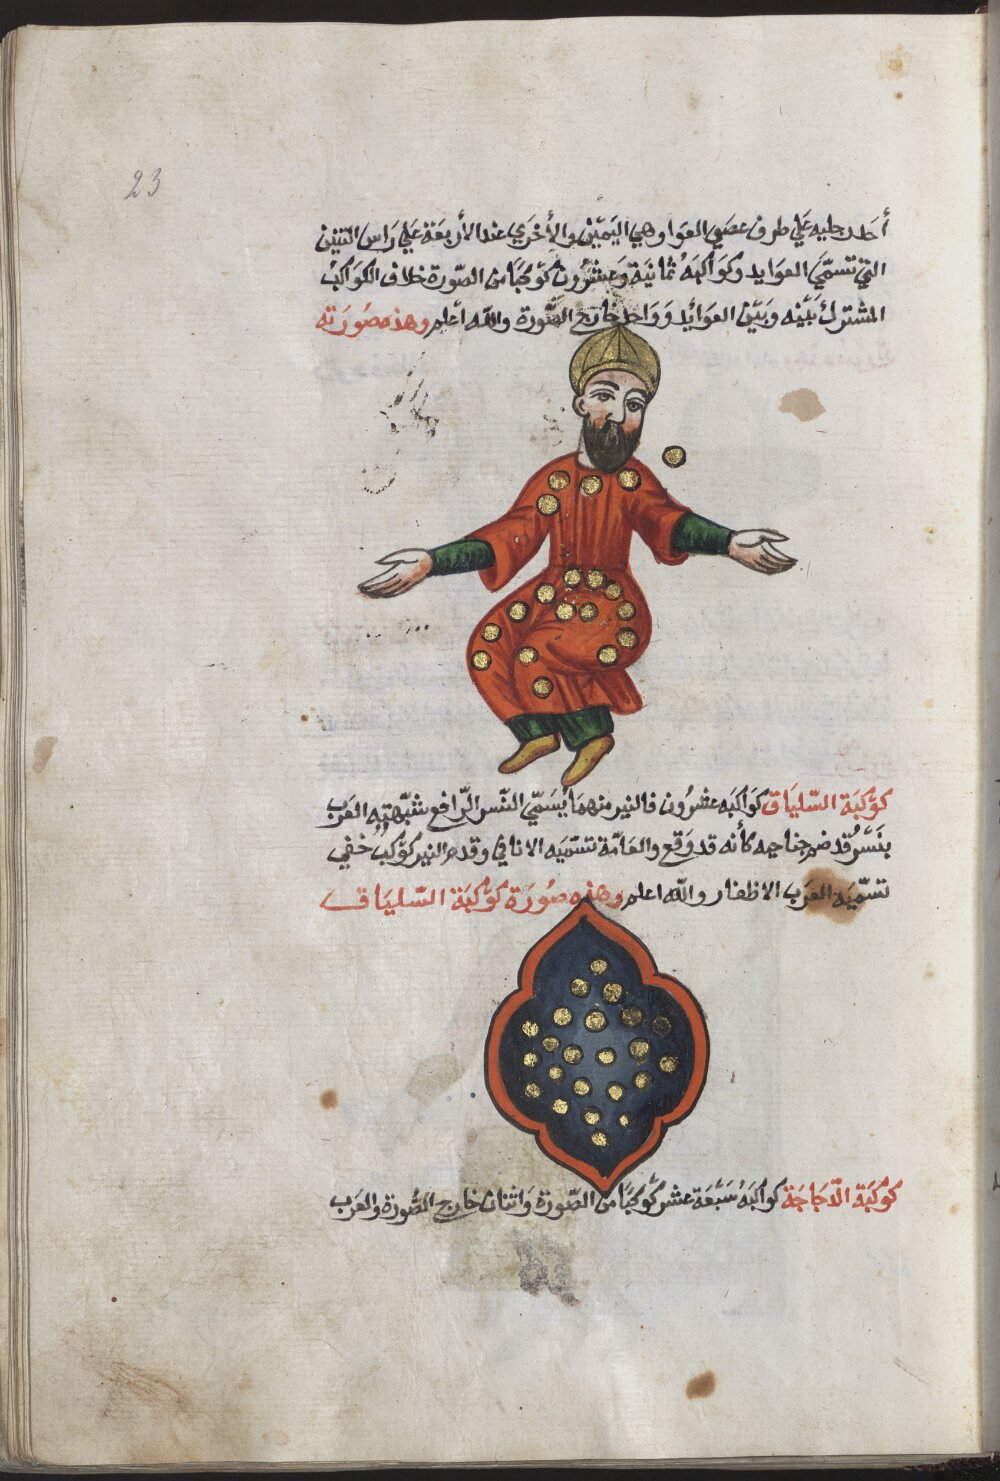 23
أحد رجليه علي طرف عصي العوا وهي اليمين والأخري عند الأربعة علي راس التنين
التي تسمّي العوايد وكواكبه ثمانية وعشرون كوكبًا من الصّورة خلاف الكواكب
المشترك بينه وبين العوائد وواحد خارج الصّورة والله اعلم وهذه صورته
كوكبة السّلياق كواكبه عشرون فالنير منهما يُسمّي النّسر الرّافع شبّهته العرب
بنسر قد ضم جناحيه كأنه قد وقع والعامّة تسّميه الاثافي وقدم النير كوكب خفي
تسمّيه العرب الاظفار والله اعلم وهذه صورة كوكبة السّلياق
كوكبة الدّجاجة كواكبه سبعة عشر كوكبًا من الصّورة واثنان خارج الصّورة والعرب